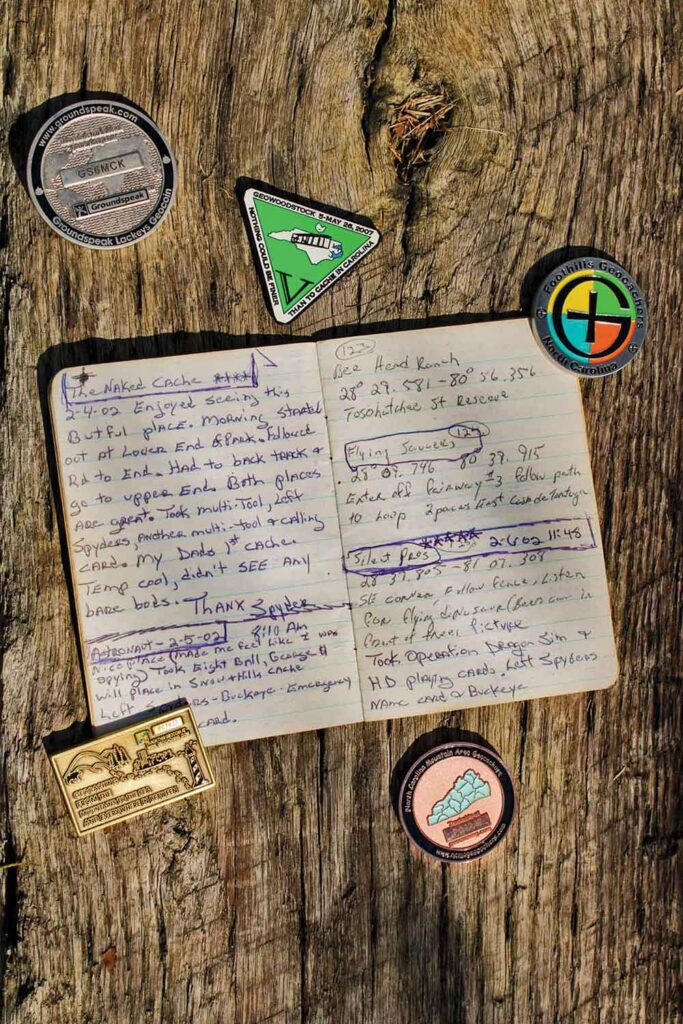 www.groundspeak.com
GS6MCK
Groundspeak
Groundspeak Lackeys Geocoin
GEOWOODSTOCK 5-MAY 26, 2007
NOTHING COULD BE FINER
THAN TO CACHE IN CAROLINA
Foothills Geocachers
North Carolina
The Naked Cache ****
2-4-02 Enjoyed seeing this
Butful place. Morning started
out at Lower End of Park. Followed
Rd to End. Had to back track &
go to upper End. Both places
Are great. Took multi-Tool, Left
Spyders, Another multi-tool & calling
card. My Dads 1st cache.
Temp cool, didn't SEE Any
bare bods. Thanx Spyder
Astronaut - 2-5-02 8:10 Am
Nice place (made me feel like I was
spying) Took Eight Ball, George &
will place in Snow Hills Cache
Left - Buckeye - Emergency
card.
123
Bee Head Ranch
28° 29.581 - 80° 56.356
Tosohatchee St Reserve
Flying Saucers
28° 09.746 80 39.915
Enter off Fairway #3 Follow path
to Loop 2 paces East
Silent Pros ***** 2-6-02 11:48
28 37.805 - 81 07.308
SE corner Follow fence. Listen
For flying dinosaur
front of three Picture
Took Operation Dragon Sim &
HD playing cards. Left Spyders
Name card & Buckeye
North Carolina Mountain Area Geocachers